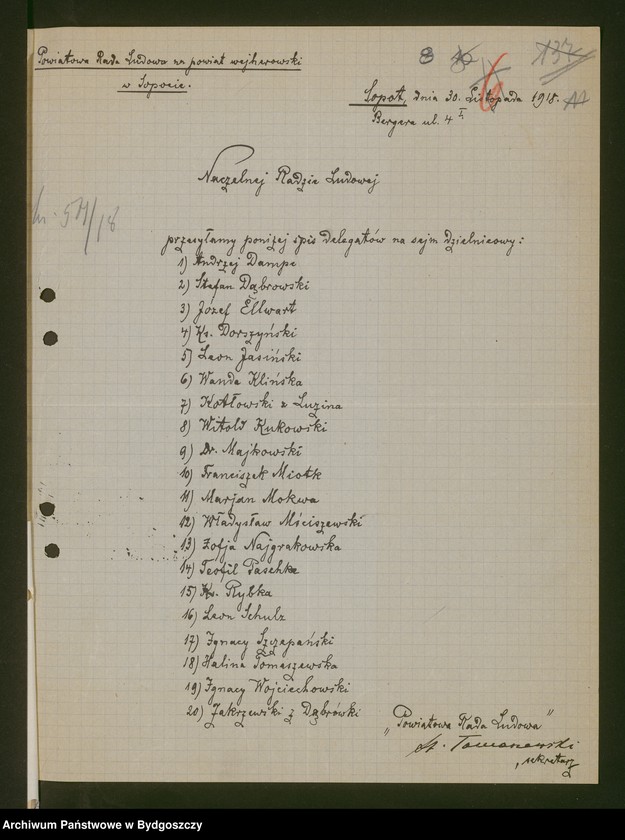 Powiatowa Rada Ludowa na powiat wejherowski
w Sopocie.
8
6
137
Sopot, dnia 30. Listopada 1918.
Bergera ul. 4 I.
Naczelnej Radzie Ludowej
przesyłamy poniżej spis delegatów na sejm dzielnicowy:
1) Andrzej Dampc
2) Stefan Dąbrowski
3) Józef Ellwart
4) Ks. Dorszyński
5) Leon Jasiński
6) Wanda Klińska
7) Kotłowski z Luzina
8) Witold Kukowski
9) Dr. Majkowski
10) Franciszek Miotk
11) Marjan Mokwa
12) Władysław Mściszewski
13) Zofja Najgrakowska
14) Teofil Paschke
15) Ks. Rybka
16) Leon Schulz
17) Ignacy Szczepański
18) Halina Tomaszewska
19) Ignacy Wojciechowski
20) Zakrzewski z Dąbrówki
„Powiatowa Rada Ludowa"
St. Tomaszewski
, sekretarz
Archiwum Państwowe w Bydgoszczy